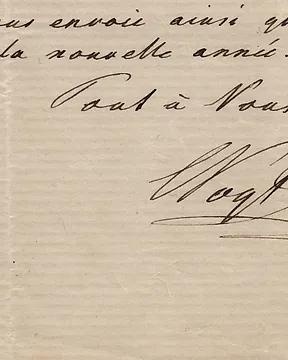 ous envoie ainsi qu
la nouvelle année.
Tout à Vous
Vogt